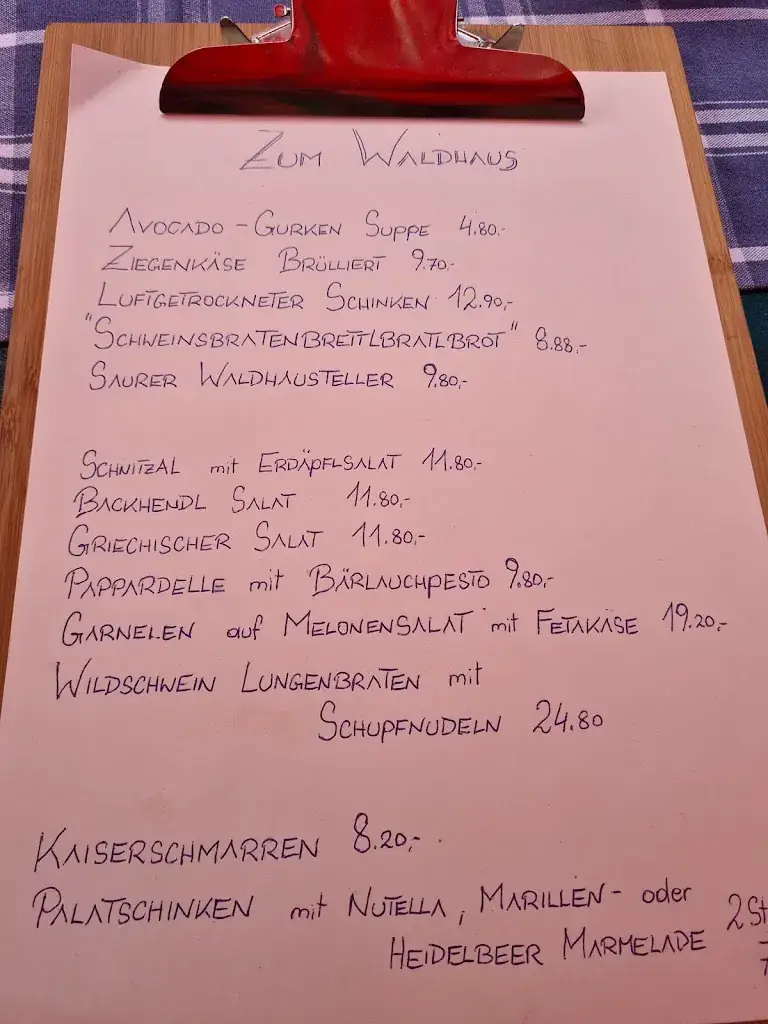 ZUM WALDHAUS
AVOCADO - GURKEN SUPPE 4.80,-
ZIEGENKÄSE BRÜLLIERT 9.70,-
LUFTGETROCKNETER SCHINKEN 12.90,-
"SCHWEINSBRATENBRETTLBRATLBROT" 8.88,-
SAURER WALDHAUSTELLER 9.80,-
SCHNITZAL mit ERDÄPFLSALAT 11.80,-
BACKHENDL SALAT 11.80,-
GRIECHISCHER SALAT 11.80,-
PAPPARDELLE mit BÄRLAUCHPESTO 9.80,-
GARNELEN auf MELONENSALAT mit FETAKÄSE 19.20,-
WILDSCHWEIN LUNGENBRATEN mit
SCHUPFNUDELN 24.80
KAISERSCHMARREN 8.20,-
PALATSCHINKEN mit NUTELLA, MARILLEN- oder 2 St
HEIDELBEER MARMELADE